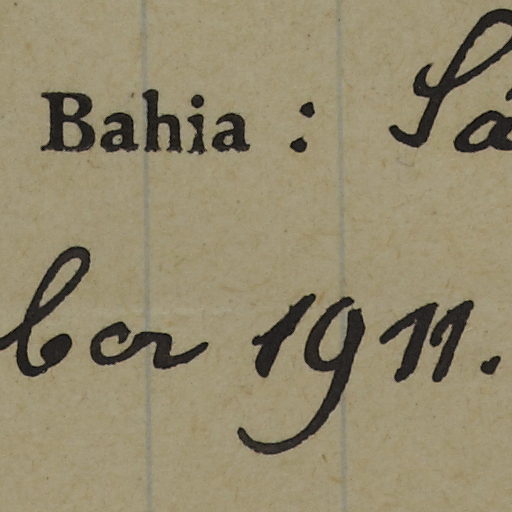 Bahia : Sa
ber 1911.